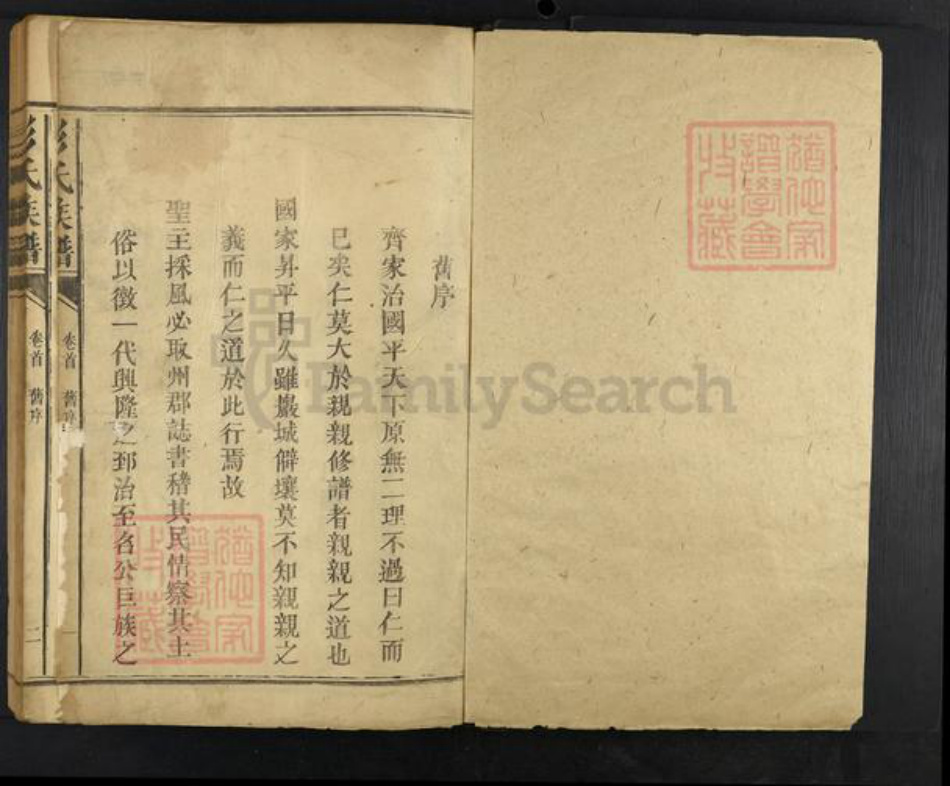 舊序
齊家治國平天下原無二理不過曰仁而
已矣仁莫大於親親修譜者親親之道也
國家昇平日久雖巖城僻壤莫不知親親之
義而仁之道於此行焉故
聖主採風必取州郡誌書稽其民情察其土
俗以徵一代興隆之郅治至名公巨族之
彭氏族譜
卷首 舊序
彭氏族譜
卷首 舊序 二
FamilySearch
猶他家
譜學會
收藏
猶他家
譜學會
收藏